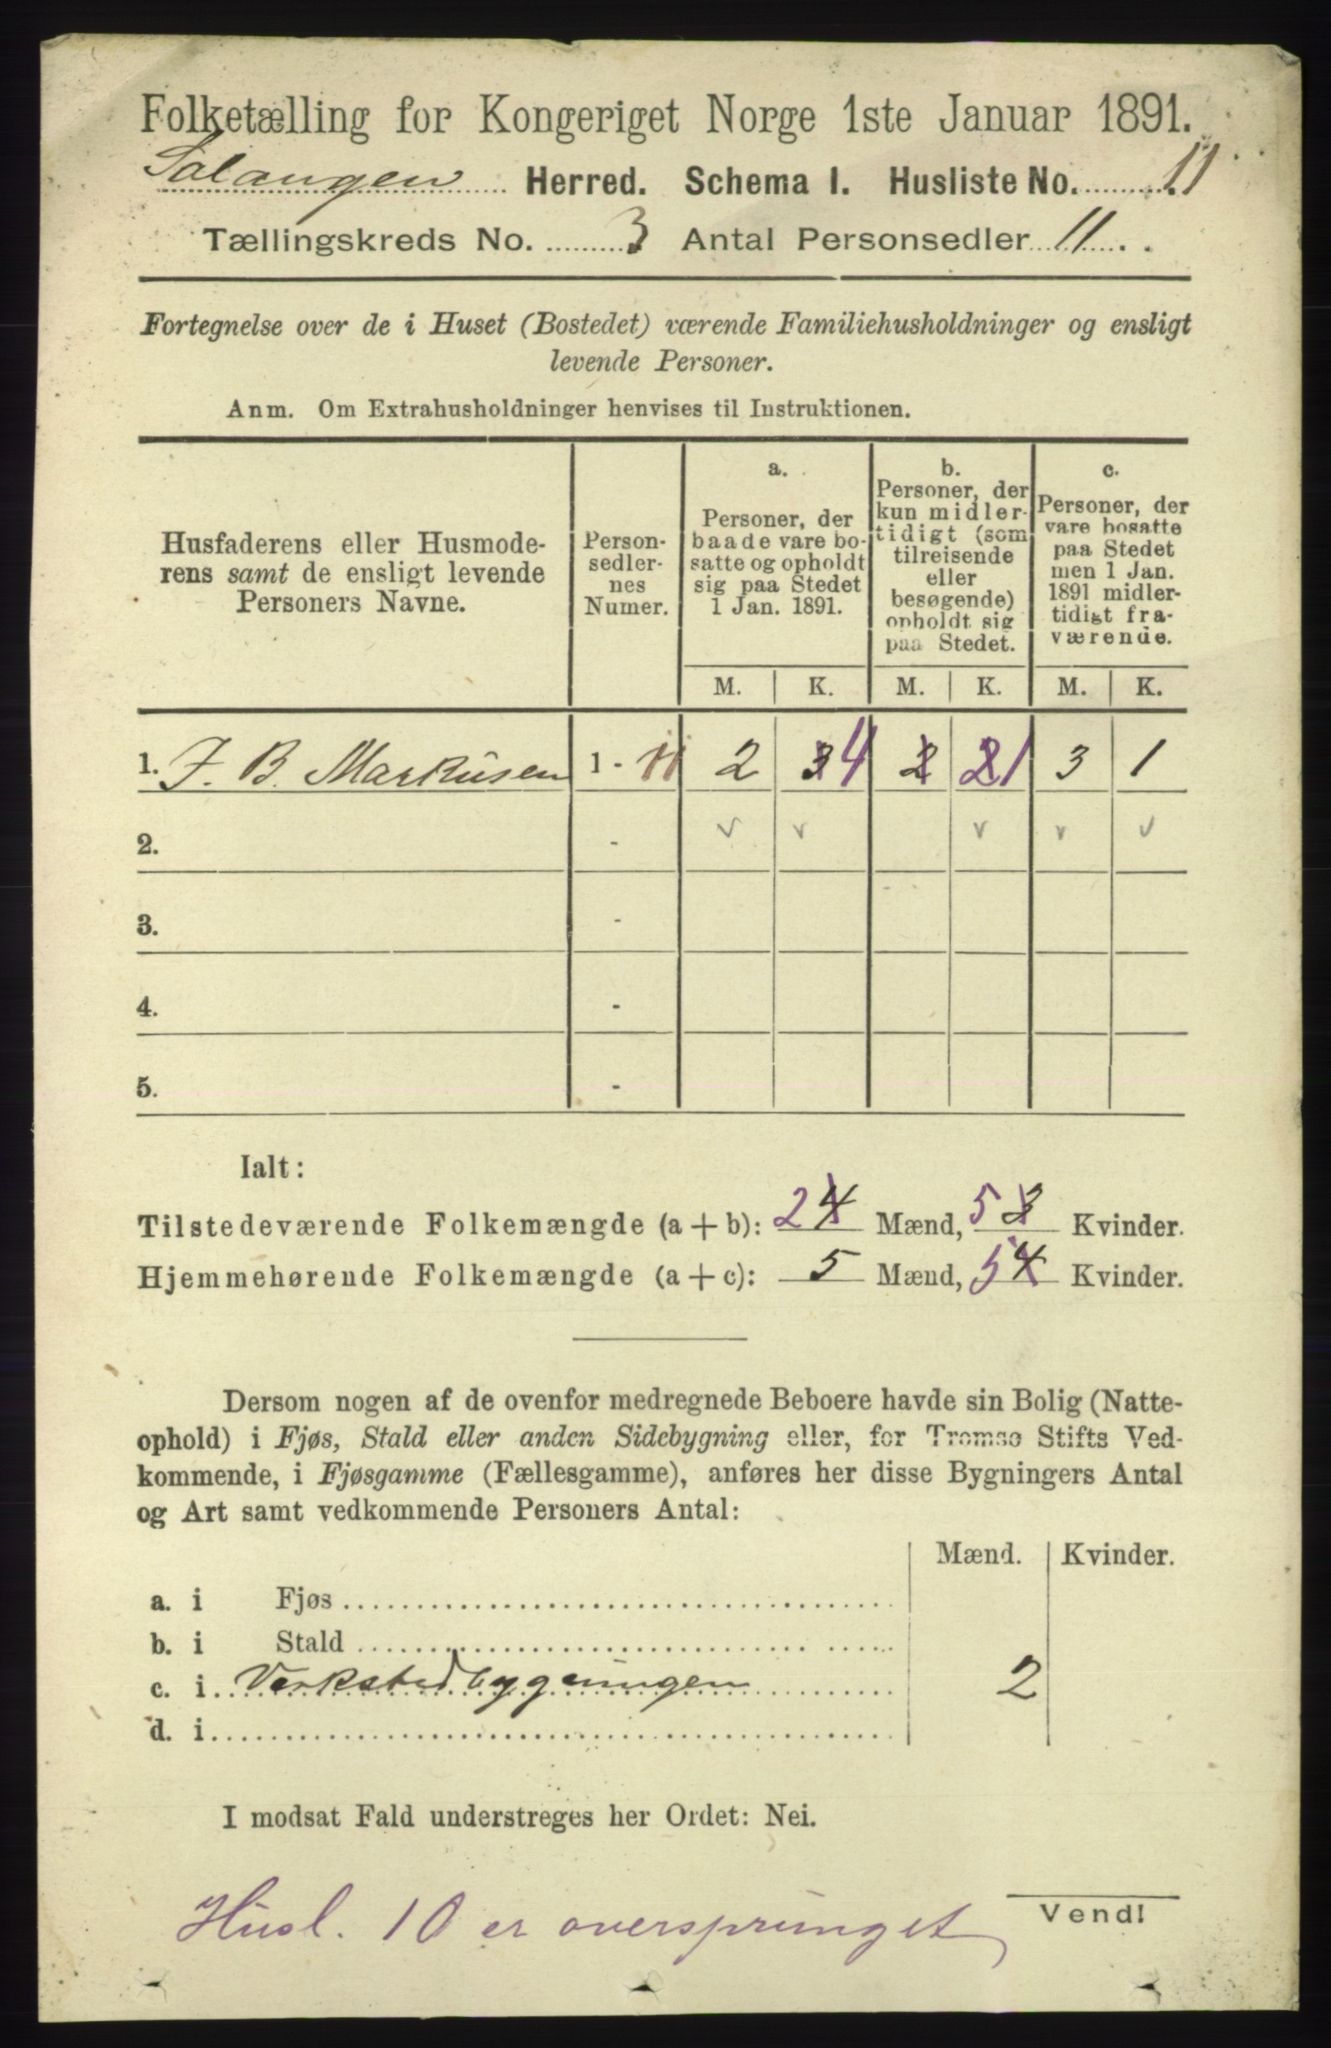 Folketælling for Kongeriget Norge 1ste Januar 1891.
Salangen Herred. Schema I. Husliste No. 11
Tællingskreds No. 3 Antal Personsedler 11
Fortegnelse over de i Huset (Bostedet) værende Familiehusholdninger og ensligt
levende Personer.
Anm. Om Extrahusholdninger henvises til Instruktionen.
Husfaderens eller Husmode-
rens samt de ensligt levende
Personers Navne.
Person-
sedler-
nes
Numer.
a.
Personer, der
baade vare bo-
satte og opholdt
sig paa Stedet
1 Jan. 1891.
b.
Personer, der
kun midler-
tidigt (som
tilreisende
eller
besøgende)
opholdt sig
paa Stedet.
c.
Personer, der
vare bosatte
paa Stedet
men 1 Jan.
1891 midler-
tidigt fra-
værende.
M. K. M. K. M. K.
1. J. B. Markusen 1 - 11 2 3 4 2 2 1 3 1
2. - v v v v v
3. -
4. -
5. -
Ialt:
Tilstedeværende Folkemængde (a + b): 2 4 Mænd, 5 3 Kvinder.
Hjemmehørende Folkemængde (a + c): 5 Mænd, 5 4 Kvinder.
Dersom nogen af de ovenfor medregnede Beboere havde sin Bolig (Natte-
ophold) i Fjøs, Stald eller anden Sidebygning eller, for Tromsø Stifts Ved-
kommende, i Fjøsgamme (Fællesgamme), anføres her disse Bygningers Antal
og Art samt vedkommende Personers Antal:
Mænd. Kvinder.
a. i Fjøs
b. i Stald
c. i Verkstedbygningen 2
d. i
I modsat Fald understreges her Ordet: Nei.
Vend!
Husl. 10 er oversprunget